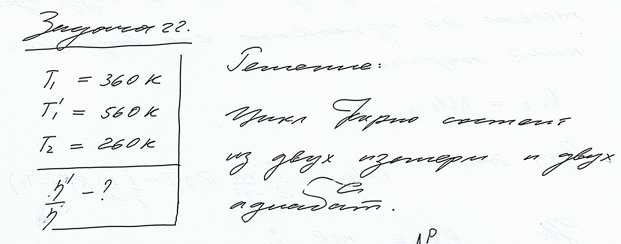 Задача 22.
T₁ = 360 К
T₁' = 560 К
T₂ = 260 К
η'/η - ?
Решение:
Цикл Карно состоит
из двух изотерм и двух
адиабат.
P